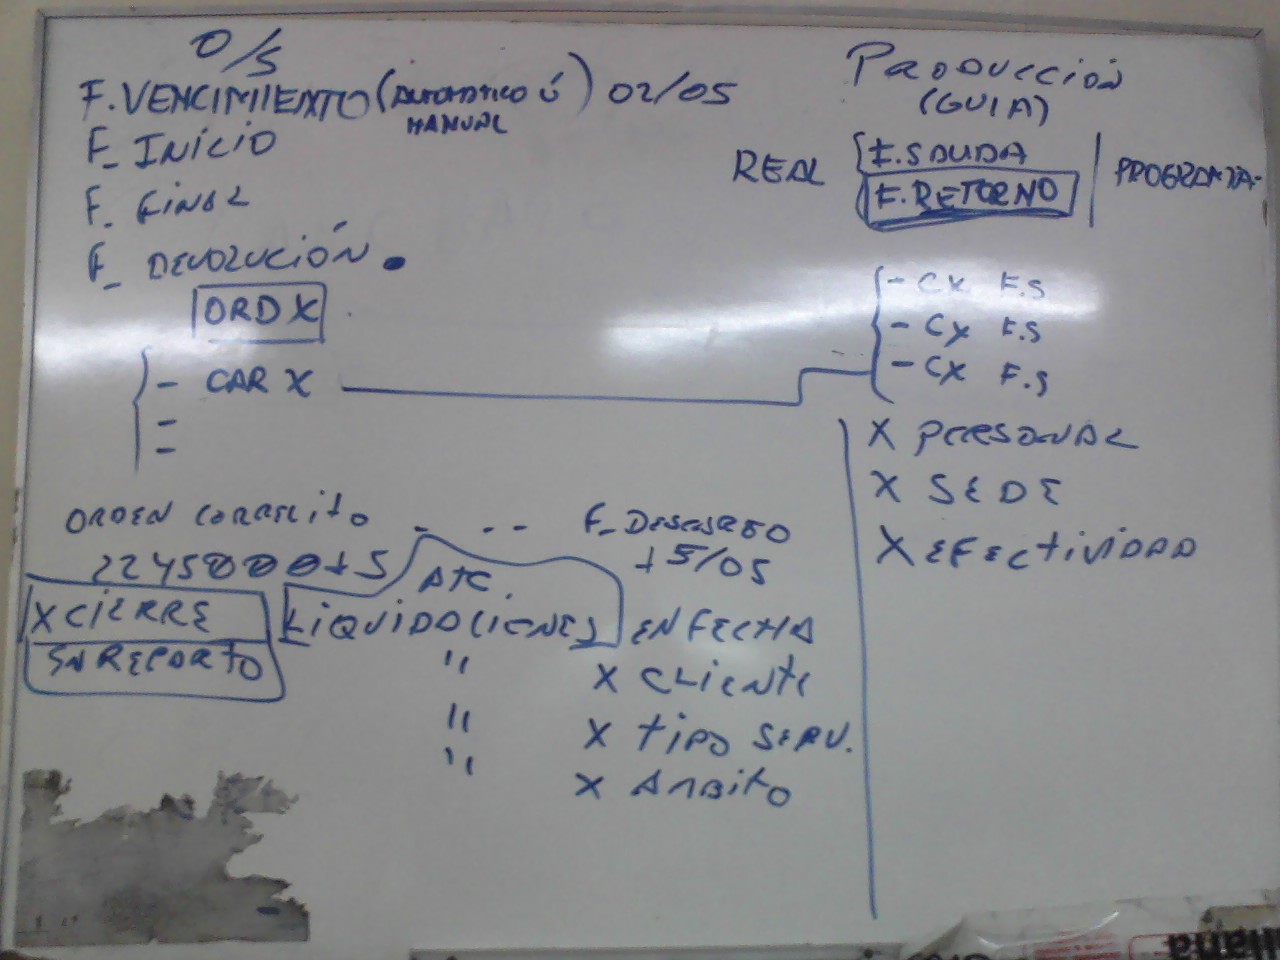 O/S
F. VENCIMIENTO (AUTOMATICO Ú MANUAL) 02/05
F_ INICIO
F_ FINAL
F_ DEVOLUCIÓN
ORD X
- CAR X
-
-
PRODUCCION
(GUIA)
REAL
F. SALIDA
F. RETORNO
- CX F.S
- CX F.S
- CX F.S
X PERSONAL
X SEDE
X EFECTIVIDAD
ORDEN - - -
F_ DESCARGO
15/05
X CIERRE
SIN REPORTO
ATC.
LIQUIDACIONES EN FECHA
" X CLIENTE
" X TIPO SERV.
" X AMBITO